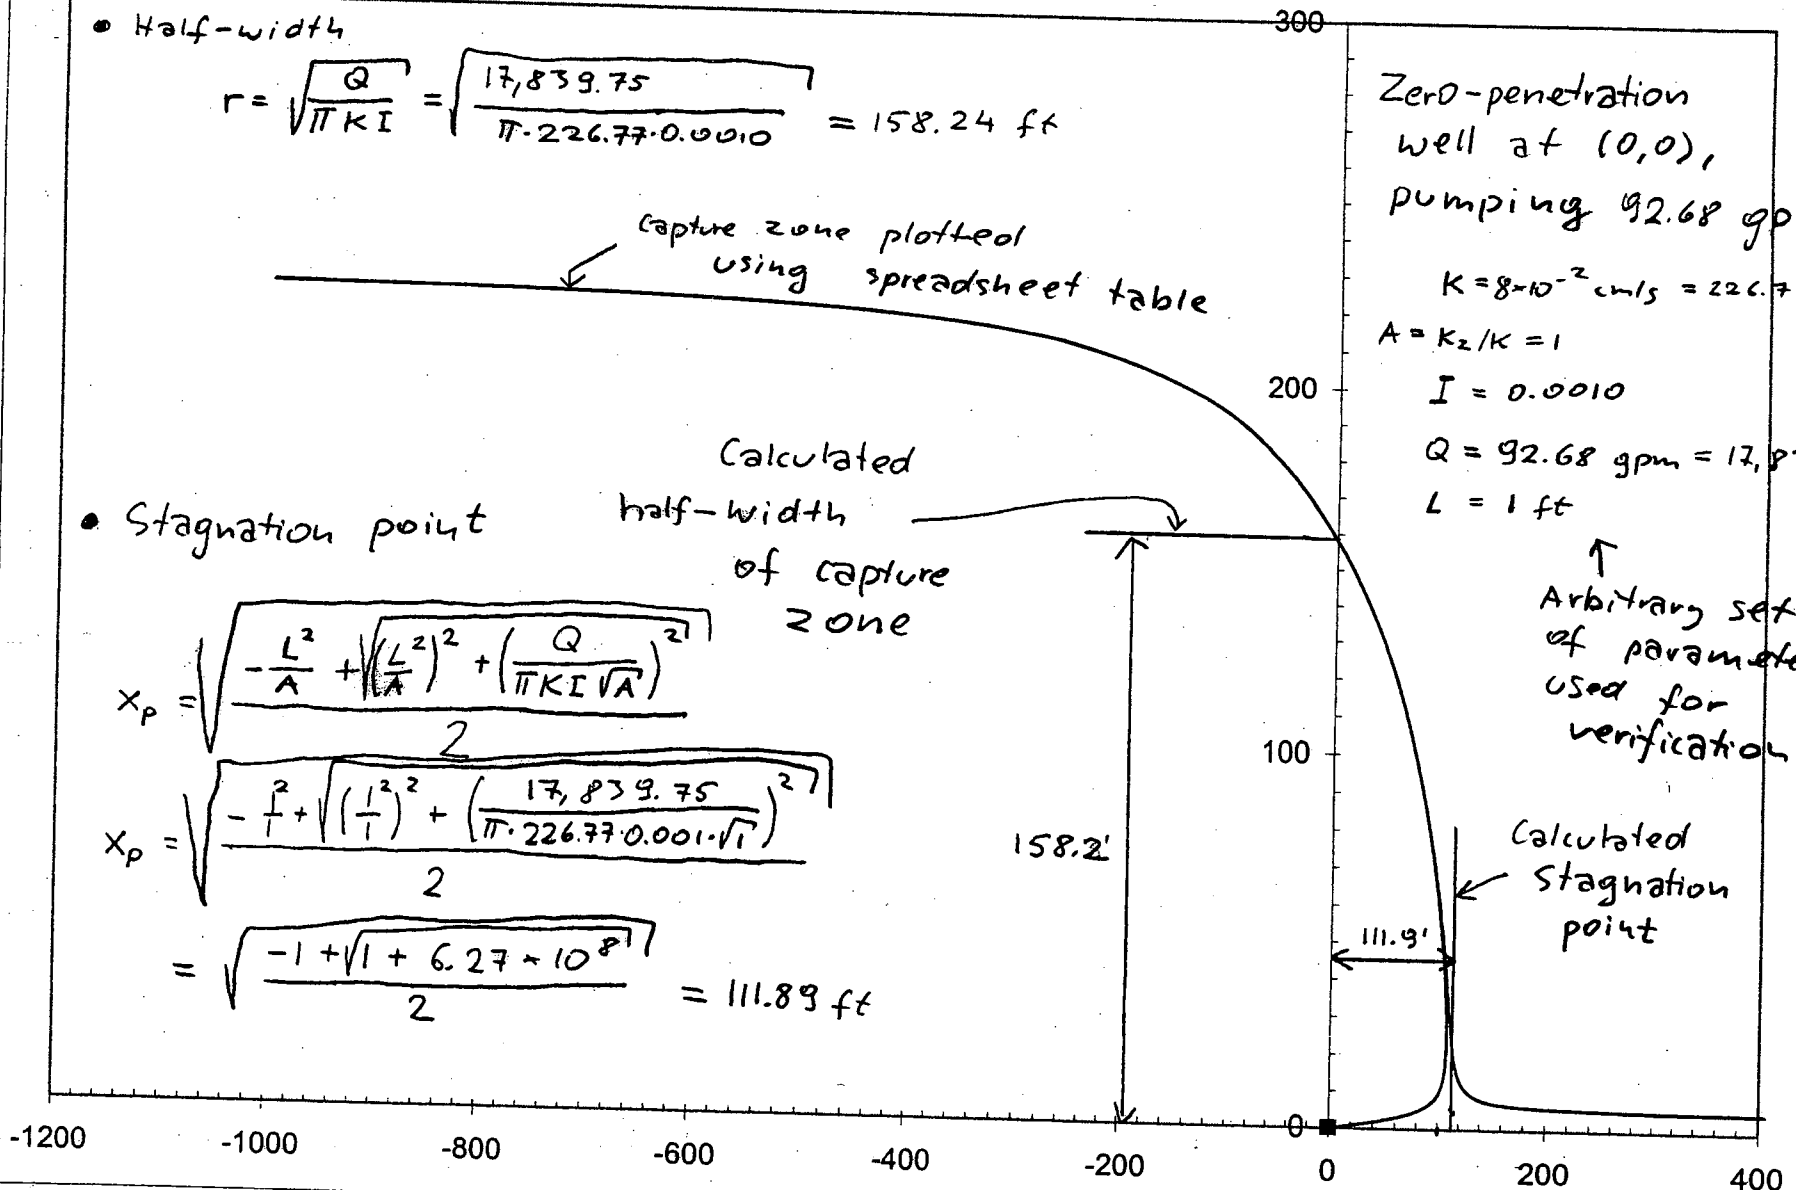 • Half-width
r = √(Q / (π K I)) = √(17,839.75 / (π · 226.77 · 0.0010)) = 158.24 ft
capture zone plotted
using spreadsheet table
Calculated
half-width
of capture
zone
• Stagnation point
x_p = √((-L²/A + √((L²/A)² + (Q / (π K I √A))²)) / 2)
x_p = √((-1²/1 + √((1²/1)² + (17,839.75 / (π · 226.77 · 0.001 · √1))²)) / 2)
= √((-1 + √(1 + 6.27 × 10⁸)) / 2) = 111.89 ft
Zero-penetration
well at (0,0),
pumping 92.68 gp
K = 8×10⁻² cm/s = 226.7
A = K₂/K = 1
I = 0.0010
Q = 92.68 gpm = 17,8
L = 1 ft
↑
Arbitrary set
of paramete
used for
verification
Calculated
Stagnation
point
158.2'
111.9'
300
200
100
0
-1200 -1000 -800 -600 -400 -200 0 200 400